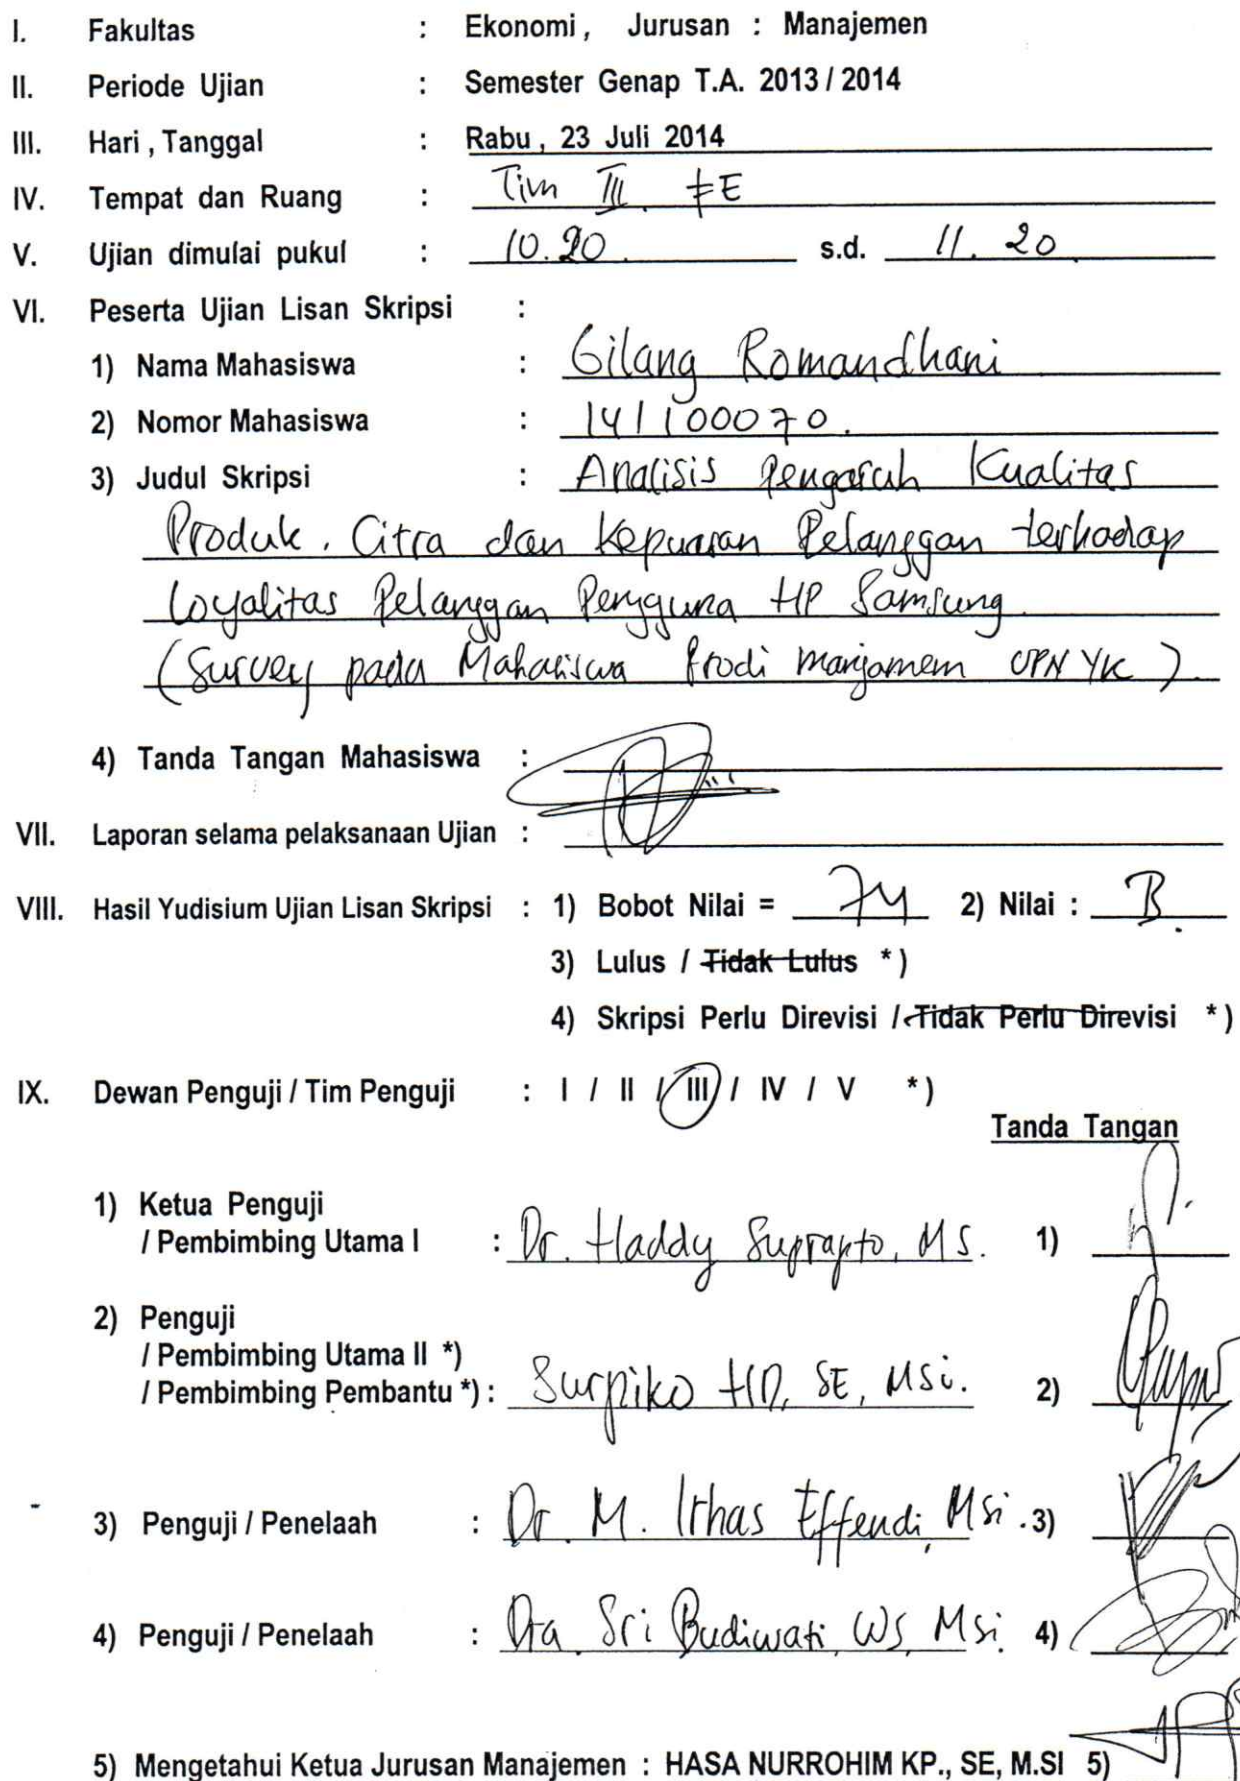 I. Fakultas : Ekonomi, Jurusan : Manajemen
II. Periode Ujian : Semester Genap T.A. 2013 / 2014
III. Hari , Tanggal : Rabu , 23 Juli 2014
IV. Tempat dan Ruang : Tim III. FE
V. Ujian dimulai pukul : 10.20. s.d. 11.20
VI. Peserta Ujian Lisan Skripsi :
1) Nama Mahasiswa : Gilang Romandhani
2) Nomor Mahasiswa : 141100070.
3) Judul Skripsi : Analisis Pengaruh Kualitas
Produk, Citra dan Kepuasan Pelanggan terhadap
Loyalitas Pelanggan Pengguna HP Samsung
(Survey pada Mahasiswa Prodi manjamem UPN YK).
4) Tanda Tangan Mahasiswa :
VII. Laporan selama pelaksanaan Ujian :
VIII. Hasil Yudisium Ujian Lisan Skripsi : 1) Bobot Nilai = 74 2) Nilai : B.
3) Lulus / Tidak Lulus *)
4) Skripsi Perlu Direvisi / Tidak Perlu Direvisi *)
IX. Dewan Penguji / Tim Penguji : I / II / III / IV / V *)
Tanda Tangan
1) Ketua Penguji
/ Pembimbing Utama I : Dr. Haddy Suprapto, MS. 1)
2) Penguji
/ Pembimbing Utama II *)
/ Pembimbing Pembantu *) : Surpiko HD, SE, MSi. 2)
3) Penguji / Penelaah : Dr. M. Irhas Effendi, Msi. 3)
4) Penguji / Penelaah : Dra Sri Budiwati, WS, Msi. 4)
5) Mengetahui Ketua Jurusan Manajemen : HASA NURROHIM KP., SE, M.SI 5)